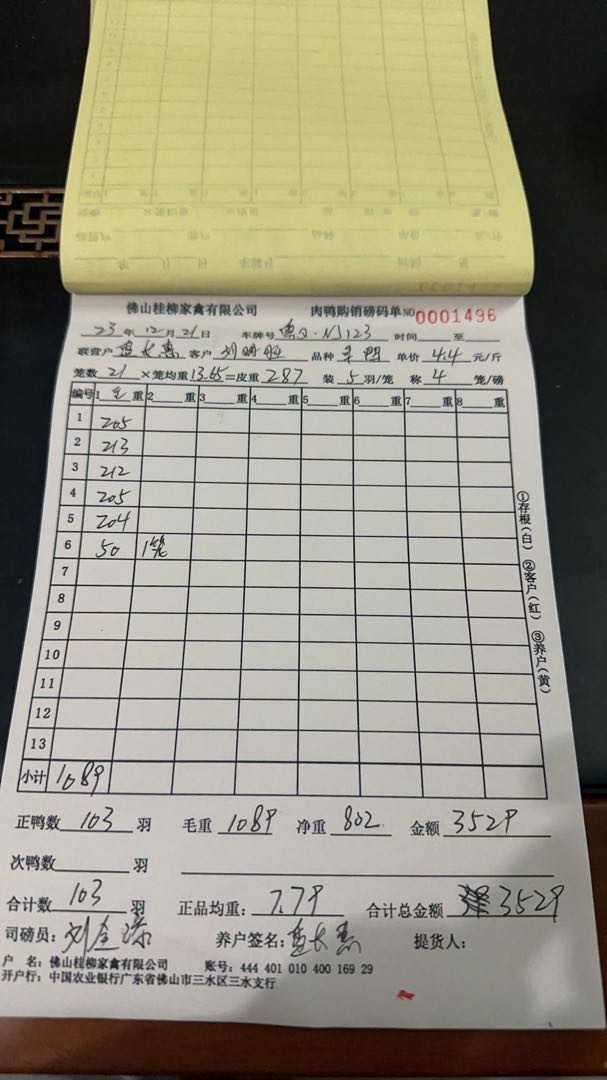 佛山桂柳家禽有限公司 肉鸭购销磅码单 NO 0001496
23年12月21日 车牌号 粤Q·NJ123 时间 至
联营户 客户 品种 单价 4.4 元/斤
笼数 21 ×笼均重 13.65 =皮重 287 装 5 羽/笼 称 4 笼/磅
编号 1 毛 重 2 重 3 重 4 重 5 重 6 重 7 重 8 重
1 205
2 213
3 212
4 205
5 204
6 50 1笼
7
8
9
10
11
12
13
小计 1089
正鸭数 103 羽 毛重 1089 净重 802 金额 3529
次鸭数 羽
合计数 103 羽 正品均重: 7.79 合计总金额 3529
司磅员: 养户签名: 提货人:
户 名: 佛山桂柳家禽有限公司 账号: 444 401 010 400 169 29
开户行: 中国农业银行广东省佛山市三水区三水支行
①存根(白) ②客户(红) ③养户(黄)